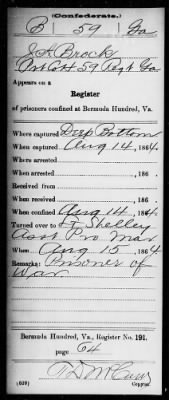 (Confederate.)
B 59 Ga
J. A. Brock
Pvt Co H 59 Regt Ga
Appears on a
Register
of prisoners confined at Bermuda Hundred, Va.
Where captured Deep Bottom
When captured Aug 14, 1864.
Where arrested
When arrested , 186 .
Received from
When received , 186 .
When confined Aug 14, 1864.
Turned over to Lt Shelley
Asst Pro Mar
When Aug 15, 1864
Remarks: Prisoner of
War
Bermuda Hundred, Va., Register No. 191,
page 64
(639) Copyist.